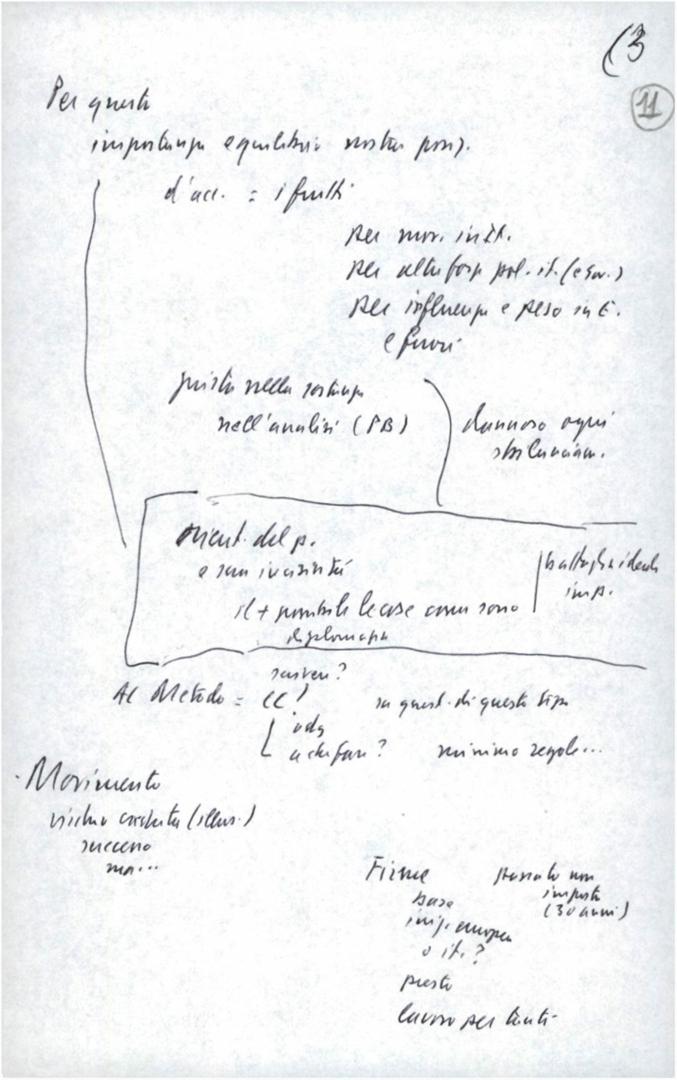 (3
11
Per questo
importanza equilibrio nostra pos).
d'acc. = i frutti
per mov. in It.
per altre forze pol. it. (e gov.)
per influenza e peso in E.
e fuori
giusta nella sostanza
nell'analisi (PB)
dannoso ogni
sbilanciam.
orient. del p.
e sua incisività
il + possibile le cose come sono
diplomazia
battaglia ideale
imp.
scrivere?
Al Metodo = CC?
su quest. di questo tipo
odg
a che fare?
minimo regole...
· Movimento
rischio caduta (illus.)
successo
ma...
Firme
base
iniz. europea
o it.?
presto
lavoro per tanti
passato non
imposto
(30 anni)